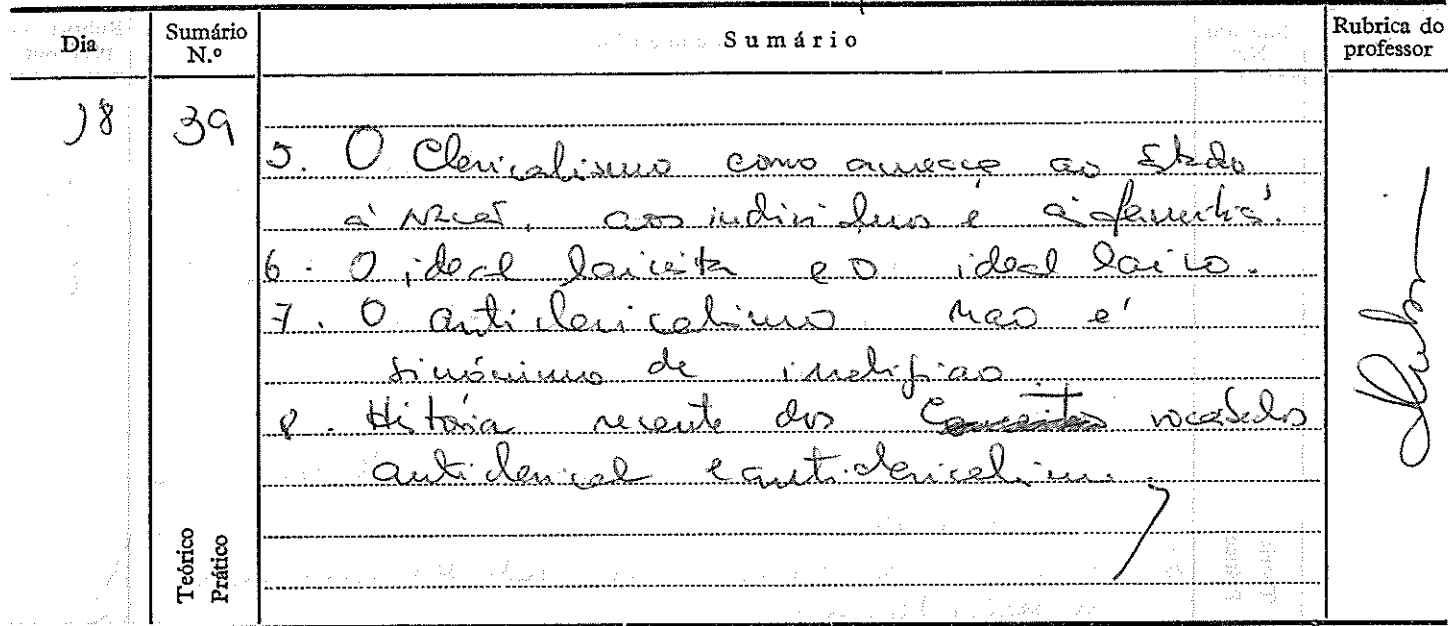 Dia
Sumário N.º
Sumário
Rubrica do professor
18
39
5. O Clericalismo como ameaça ao Estado
à Nação, aos indivíduos e à família.
6. O ideal laicista e o ideal laico.
7. O anticlericalismo não é
sinónimo de irreligião
8. História recente dos Conceitos vocábulos
anticlerical e anticlericalismo.
Teórico
Prático